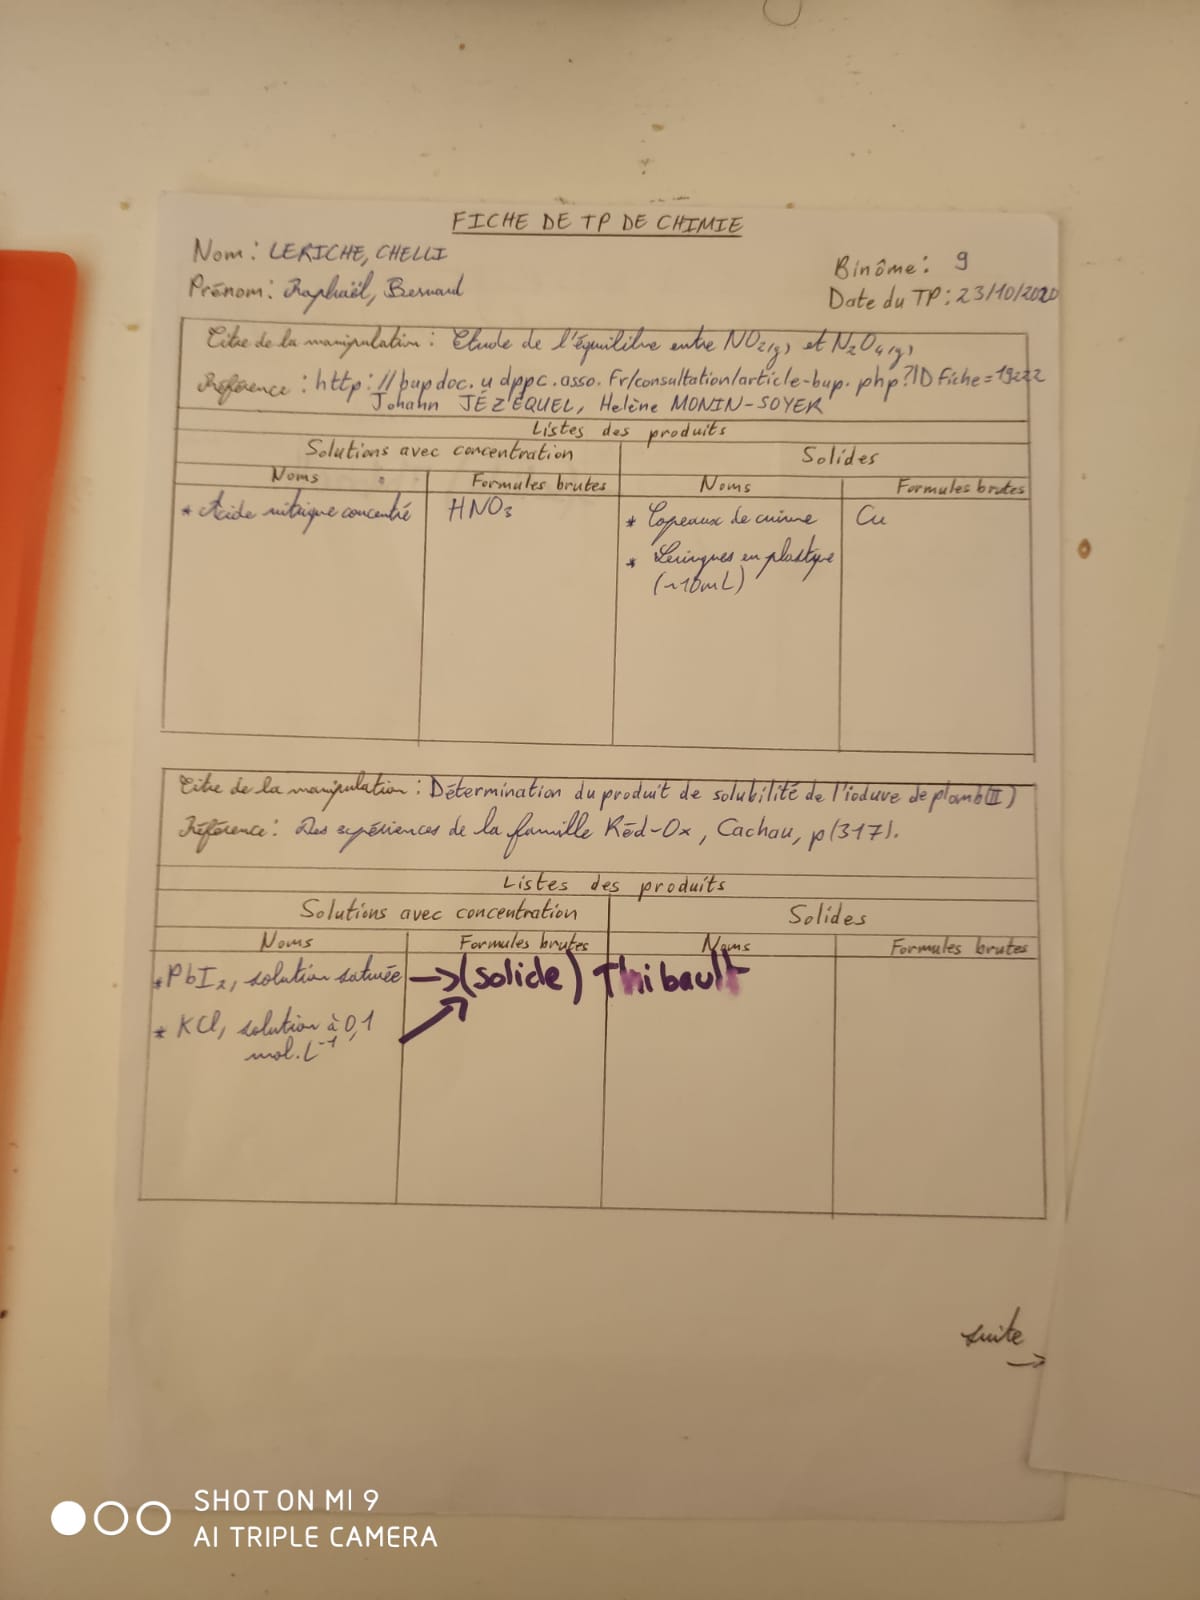 FICHE DE TP DE CHIMIE
Nom: LERICHE, CHELLI
Binôme: 9
Prénom: Raphaël, Besnard
Date du TP: 23/10/2020
Titre de la manipulation: Etude de l'équilibre entre NO2(g) et N2O4(g)
Référence: http://bupdoc.udppc.asso.fr/consultation/article-bup.php?ID Fiche=19222
Johann JÉZÉQUEL, Helène MONIN-SOYER
Listes des produits
Solutions avec concentration Solides
Noms Formules brutes Noms Formules brutes
* Acide nitrique concentré HNO3 * Copeaux de cuivre Cu
* Seringues en plastique
(~10mL)
Titre de la manipulation: Détermination du produit de solubilité de l'iodure de plomb(II)
Référence: Des expériences de la famille Réd-Ox, Cachau, p(317).
Listes des produits
Solutions avec concentration Solides
Noms Formules brutes Noms Formules brutes
* PbI2, solution saturée → (solide) Thibault
* KCl, solution à 0,1
mol.L⁻¹
suite
→
SHOT ON MI 9
AI TRIPLE CAMERA